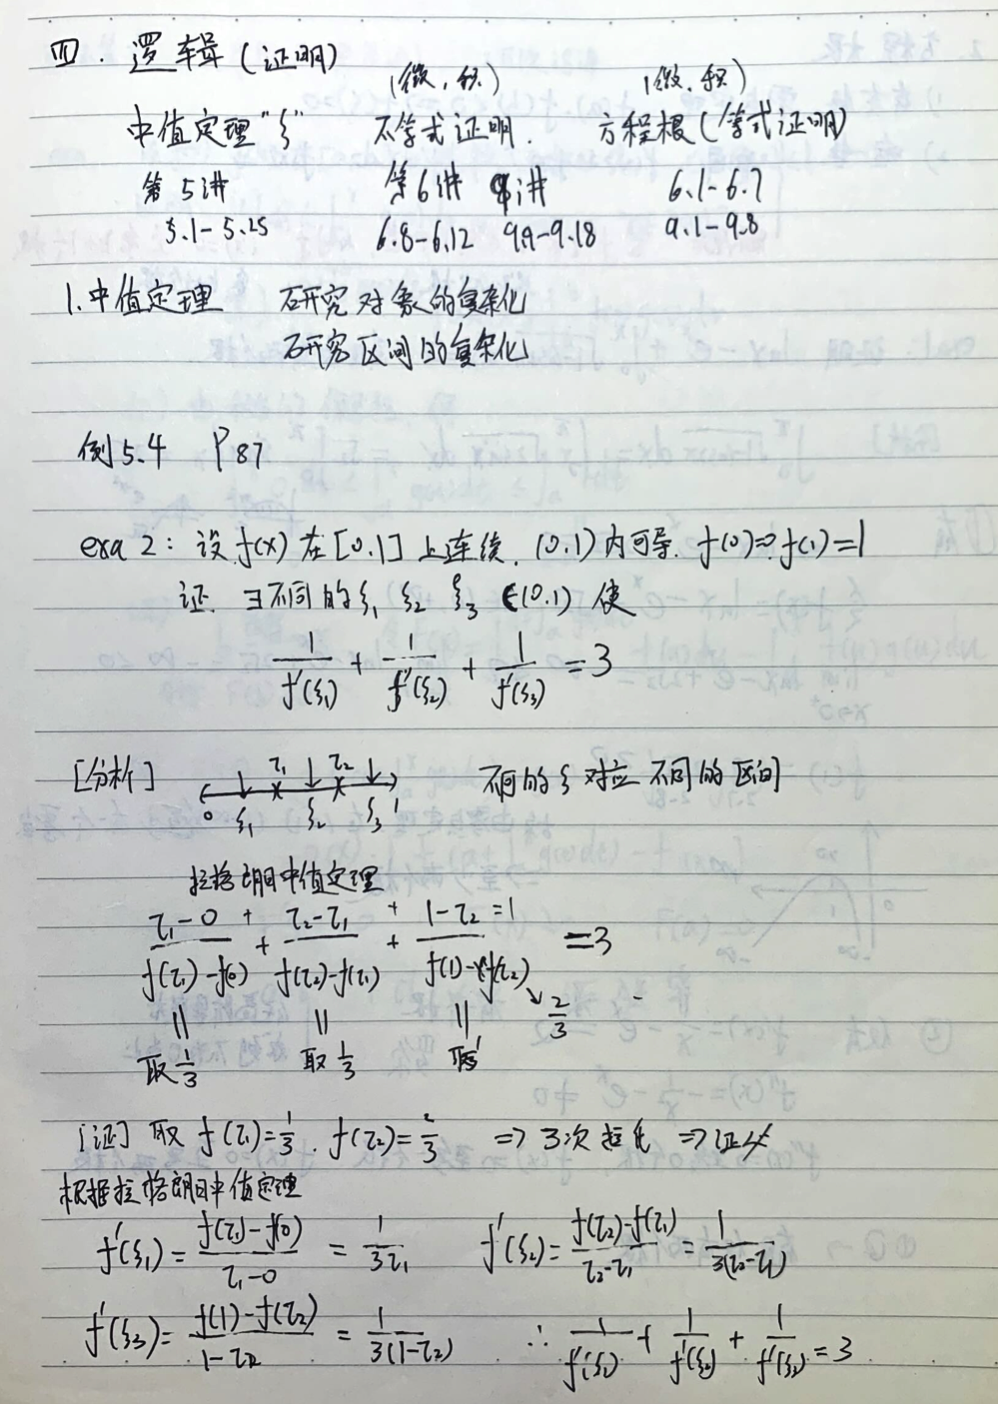 四. 逻辑(证明)
(微,积) (微.积)
中值定理"ξ" 不等式证明. 方程根(等式证明)
第5讲 第6讲 9讲 6.1-6.7
5.1-5.25 6.8-6.12 9.9-9.18 9.1-9.8
1.中值定理 研究对象的复杂化
研究区间的复杂化
例5.4 P87
exa 2: 设f(x)在[0.1]上连续. (0.1)内可导. f(0)=0 f(1)=1
证. ∃不同的ξ₁ ξ₂ ξ₃ ∈(0.1) 使
1/f'(ξ₁) + 1/f'(ξ₂) + 1/f'(ξ₃) = 3
[分析] τ₁ τ₂ 不同的ξ对应不同的区间
0 ξ₁ ξ₂ ξ₃ 1
拉格朗日中值定理
(τ₁-0)/(f(τ₁)-f(0)) + (τ₂-τ₁)/(f(τ₂)-f(τ₁)) + (1-τ₂)/(f(1)-f(τ₂)) =3
+ + =1
→ 2/3
|| || ||
取1/3 取1/3
[证] 取 f(τ₁)=1/3. f(τ₂)=2/3 => 3次拉氏 => 证毕
根据拉格朗日中值定理
f'(ξ₁) = (f(τ₁)-f(0))/(τ₁-0) = 1/3τ₁ f'(ξ₂) = (f(τ₂)-f(τ₁))/(τ₂-τ₁) = 1/3(τ₂-τ₁)
f'(ξ₃) = (f(1)-f(τ₂))/(1-τ₂) = 1/3(1-τ₂) ∴ 1/f'(ξ₁) + 1/f'(ξ₂) + 1/f'(ξ₃) = 3